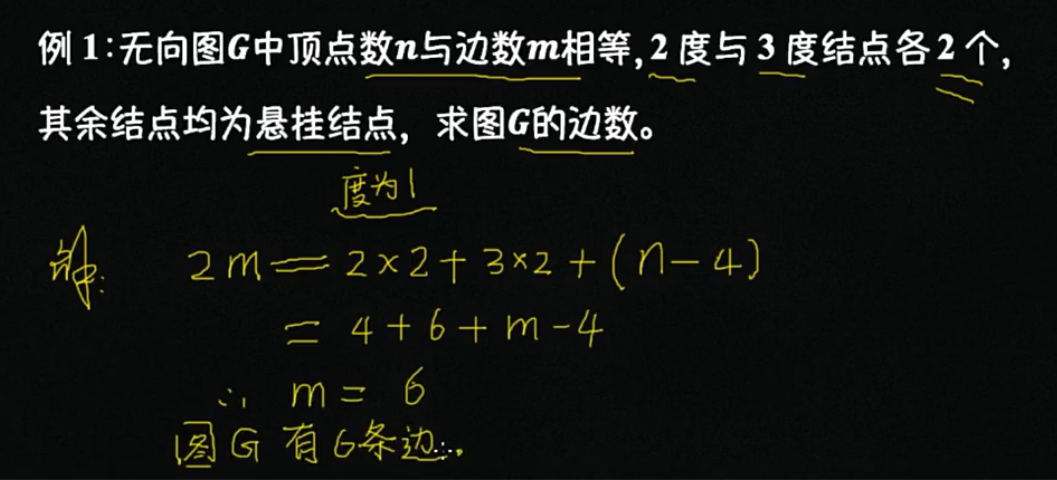 例 1:无向图G中顶点数n与边数m相等,2 度与 3 度结点各 2 个,
其余结点均为悬挂结点，求图G的边数。
度为1
解:  2m = 2×2 + 3×2 + (n-4)
= 4 + 6 + m - 4
∴ m = 6
图 G 有 6条边.